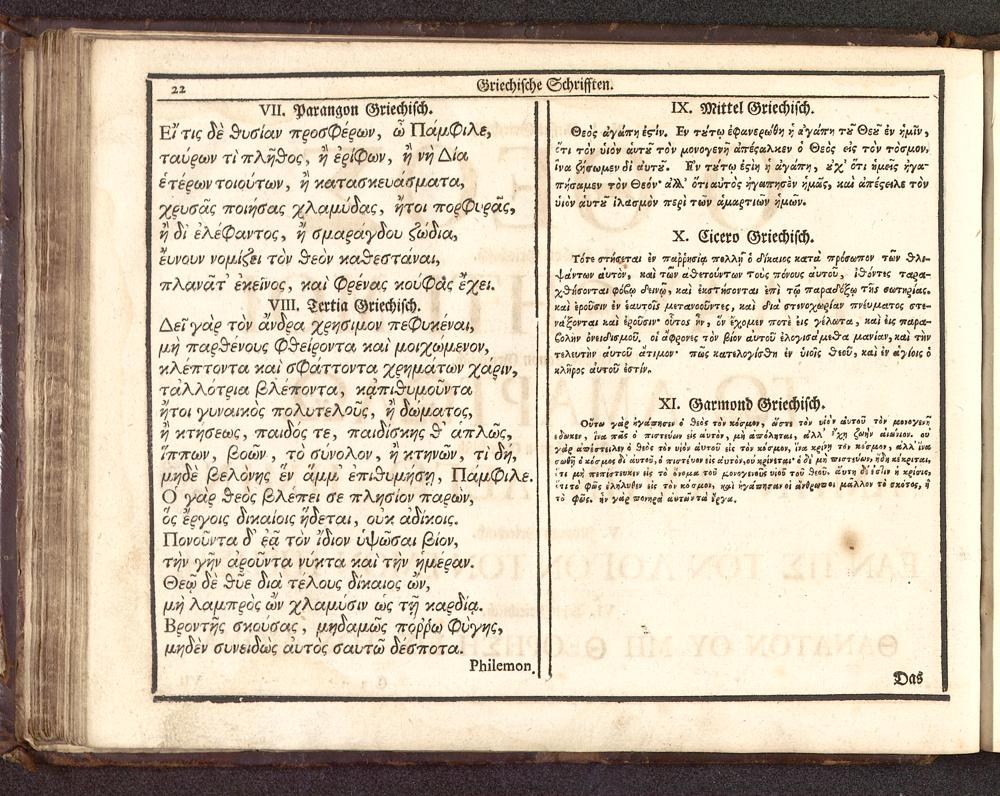 22
Griechische Schrifften.
VII. Parangon Griechisch.
Εἴ τις δὲ θυσίαν προσφέρων, ὦ Πάμφιλε,
ταύρων τὶ πλῆθος, ἢ ἐρίφων, ἢ νὴ Δία
ἑτέρων τοιούτων, ἢ κατασκευάσματα,
χρυσᾶς ποιήσας χλαμύδας, ἤτοι πορφυρᾶς,
ἢ δι' ἐλέφαντος, ἢ σμαράγδου ζώδια,
ἔυνουν νομίζει τὸν θεὸν καθεστάναι,
πλανᾶτ' ἐκεῖνος, καὶ φρένας κουφὰς ἔχει.
VIII. Tertia Griechisch.
Δεῖ γὰρ τὸν ἄνδρα χρήσιμον πεφυκέναι,
μὴ παρθένους φθείροντα καὶ μοιχώμενον,
κλέπτοντα καὶ σφάττοντα χρημάτων χάριν,
τἀλλότρια βλέποντα, κᾀπιθυμοῦντα
ἤτοι γυναικὸς πολυτελοῦς, ἢ δώματος,
ἢ κτήσεως, παιδός τε, παιδίσκης θ' ἁπλῶς,
ἵππων, βοῶν, τὸ σύνολον, ἢ κτηνῶν, τί δή,
μηδὲ βελόνης ἓν ἄμμ' ἐπιθυμήσῃ, Πάμφιλε.
Ὁ γὰρ θεὸς βλέπει σε πλησίον παρών,
ὃς ἔργοις δικαίοις ἥδεται, οὐκ ἀδίκοις.
Πονοῦντα δ' ἐᾷ τὸν ἴδιον ὑψῶσαι βίον,
τὴν γῆν ἀροῦντα νύκτα καὶ τὴν ἡμέραν.
Θεῷ δὲ θῦε διὰ τέλους δίκαιος ὤν,
μὴ λαμπρὸς ὢν χλαμύσιν ὡς τῇ καρδίᾳ.
Βροντῆς ἀκούσας, μηδαμῶς πόῤῥω φύγης,
μηδὲν συνειδὼς αὐτὸς σαυτῷ δέσποτα.
Philemon.
IX. Mittel Griechisch.
Θεὸς ἀγάπη ἐστίν. Ἐν τούτῳ ἐφανερώθη ἡ ἀγάπη τοῦ Θεοῦ ἐν ἡμῖν,
ὅτι τὸν υἱὸν αὐτοῦ τὸν μονογενῆ ἀπέσταλκεν ὁ Θεὸς εἰς τὸν κόσμον,
ἵνα ζήσωμεν δι' αὐτοῦ. Ἐν τούτῳ ἐστὶν ἡ ἀγάπη, οὐχ' ὅτι ἡμεῖς ἠγα-
πήσαμεν τὸν Θεόν· ἀλλ' ὅτι αὐτὸς ἠγάπησεν ἡμᾶς, καὶ ἀπέστειλε τὸν
υἱὸν αὐτοῦ ἱλασμὸν περὶ τῶν ἁμαρτιῶν ἡμῶν.
X. Cicero Griechisch.
Τότε στήσεται ἐν παῤῥησίᾳ πολλῇ ὁ δίκαιος κατὰ πρόσωπον τῶν θλι-
ψάντων αὐτὸν, καὶ τῶν ἀθετούντων τοὺς πόνους αὐτοῦ, ἰδόντες ταρα-
χθήσονται φόβῳ δεινῷ, καὶ ἐκστήσονται ἐπὶ τῷ παραδόξῳ τῆς σωτηρίας.
καὶ ἐροῦσιν ἐν ἑαυτοῖς μετανοοῦντες, καὶ διὰ στενοχωρίαν πνεύματος στε-
νάξονται καὶ ἐροῦσιν· οὗτος ἦν, ὃν ἔχομεν ποτὲ εἰς γέλωτα, καὶ εἰς παρα-
βολὴν ὀνειδισμοῦ. οἱ ἄφρονες τὸν βίον αὐτοῦ ἐλογισάμεθα μανίαν, καὶ τὴν
τελευτὴν αὐτοῦ ἄτιμον· πῶς κατελογίσθη ἐν υἱοῖς θεοῦ, καὶ ἐν ἁγίοις ὁ
κλῆρος αὐτοῦ ἐστίν.
XI. Garmond Griechisch.
Οὕτω γὰρ ἠγάπησεν ὁ θεὸς τὸν κόσμον, ὥστε τὸν υἱὸν αὐτοῦ τὸν μονογενῆ
ἔδωκεν, ἵνα πᾶς ὁ πιστεύων εἰς αὐτὸν, μὴ ἀπόληται, ἀλλ' ἔχῃ ζωὴν αἰώνιον. οὐ
γὰρ ἀπέστειλεν ὁ θεὸς τὸν υἱὸν αὐτοῦ εἰς τὸν κόσμον, ἵνα κρίνῃ τὸν κόσμον, ἀλλ' ἵνα
σωθῇ ὁ κόσμος δι' αὐτοῦ, ὁ πιστεύων εἰς αὐτὸν, οὐ κρίνεται· ὁ δὲ μὴ πιστεύων, ἤδη κέκριται,
ὅτι μὴ πεπίστευκεν εἰς τὸ ὄνομα τοῦ μονογενοῦς υἱοῦ τοῦ θεοῦ. αὕτη δέ ἐστὶν ἡ κρίσις,
ὅτι τὸ φῶς ἐλήλυθεν εἰς τὸν κόσμον, καὶ ἠγάπησαν οἱ ἄνθρωποι μᾶλλον τὸ σκότος, ἢ
τὸ φῶς. ἦν γὰρ πονηρὰ αὐτῶν τὰ ἔργα.
Das